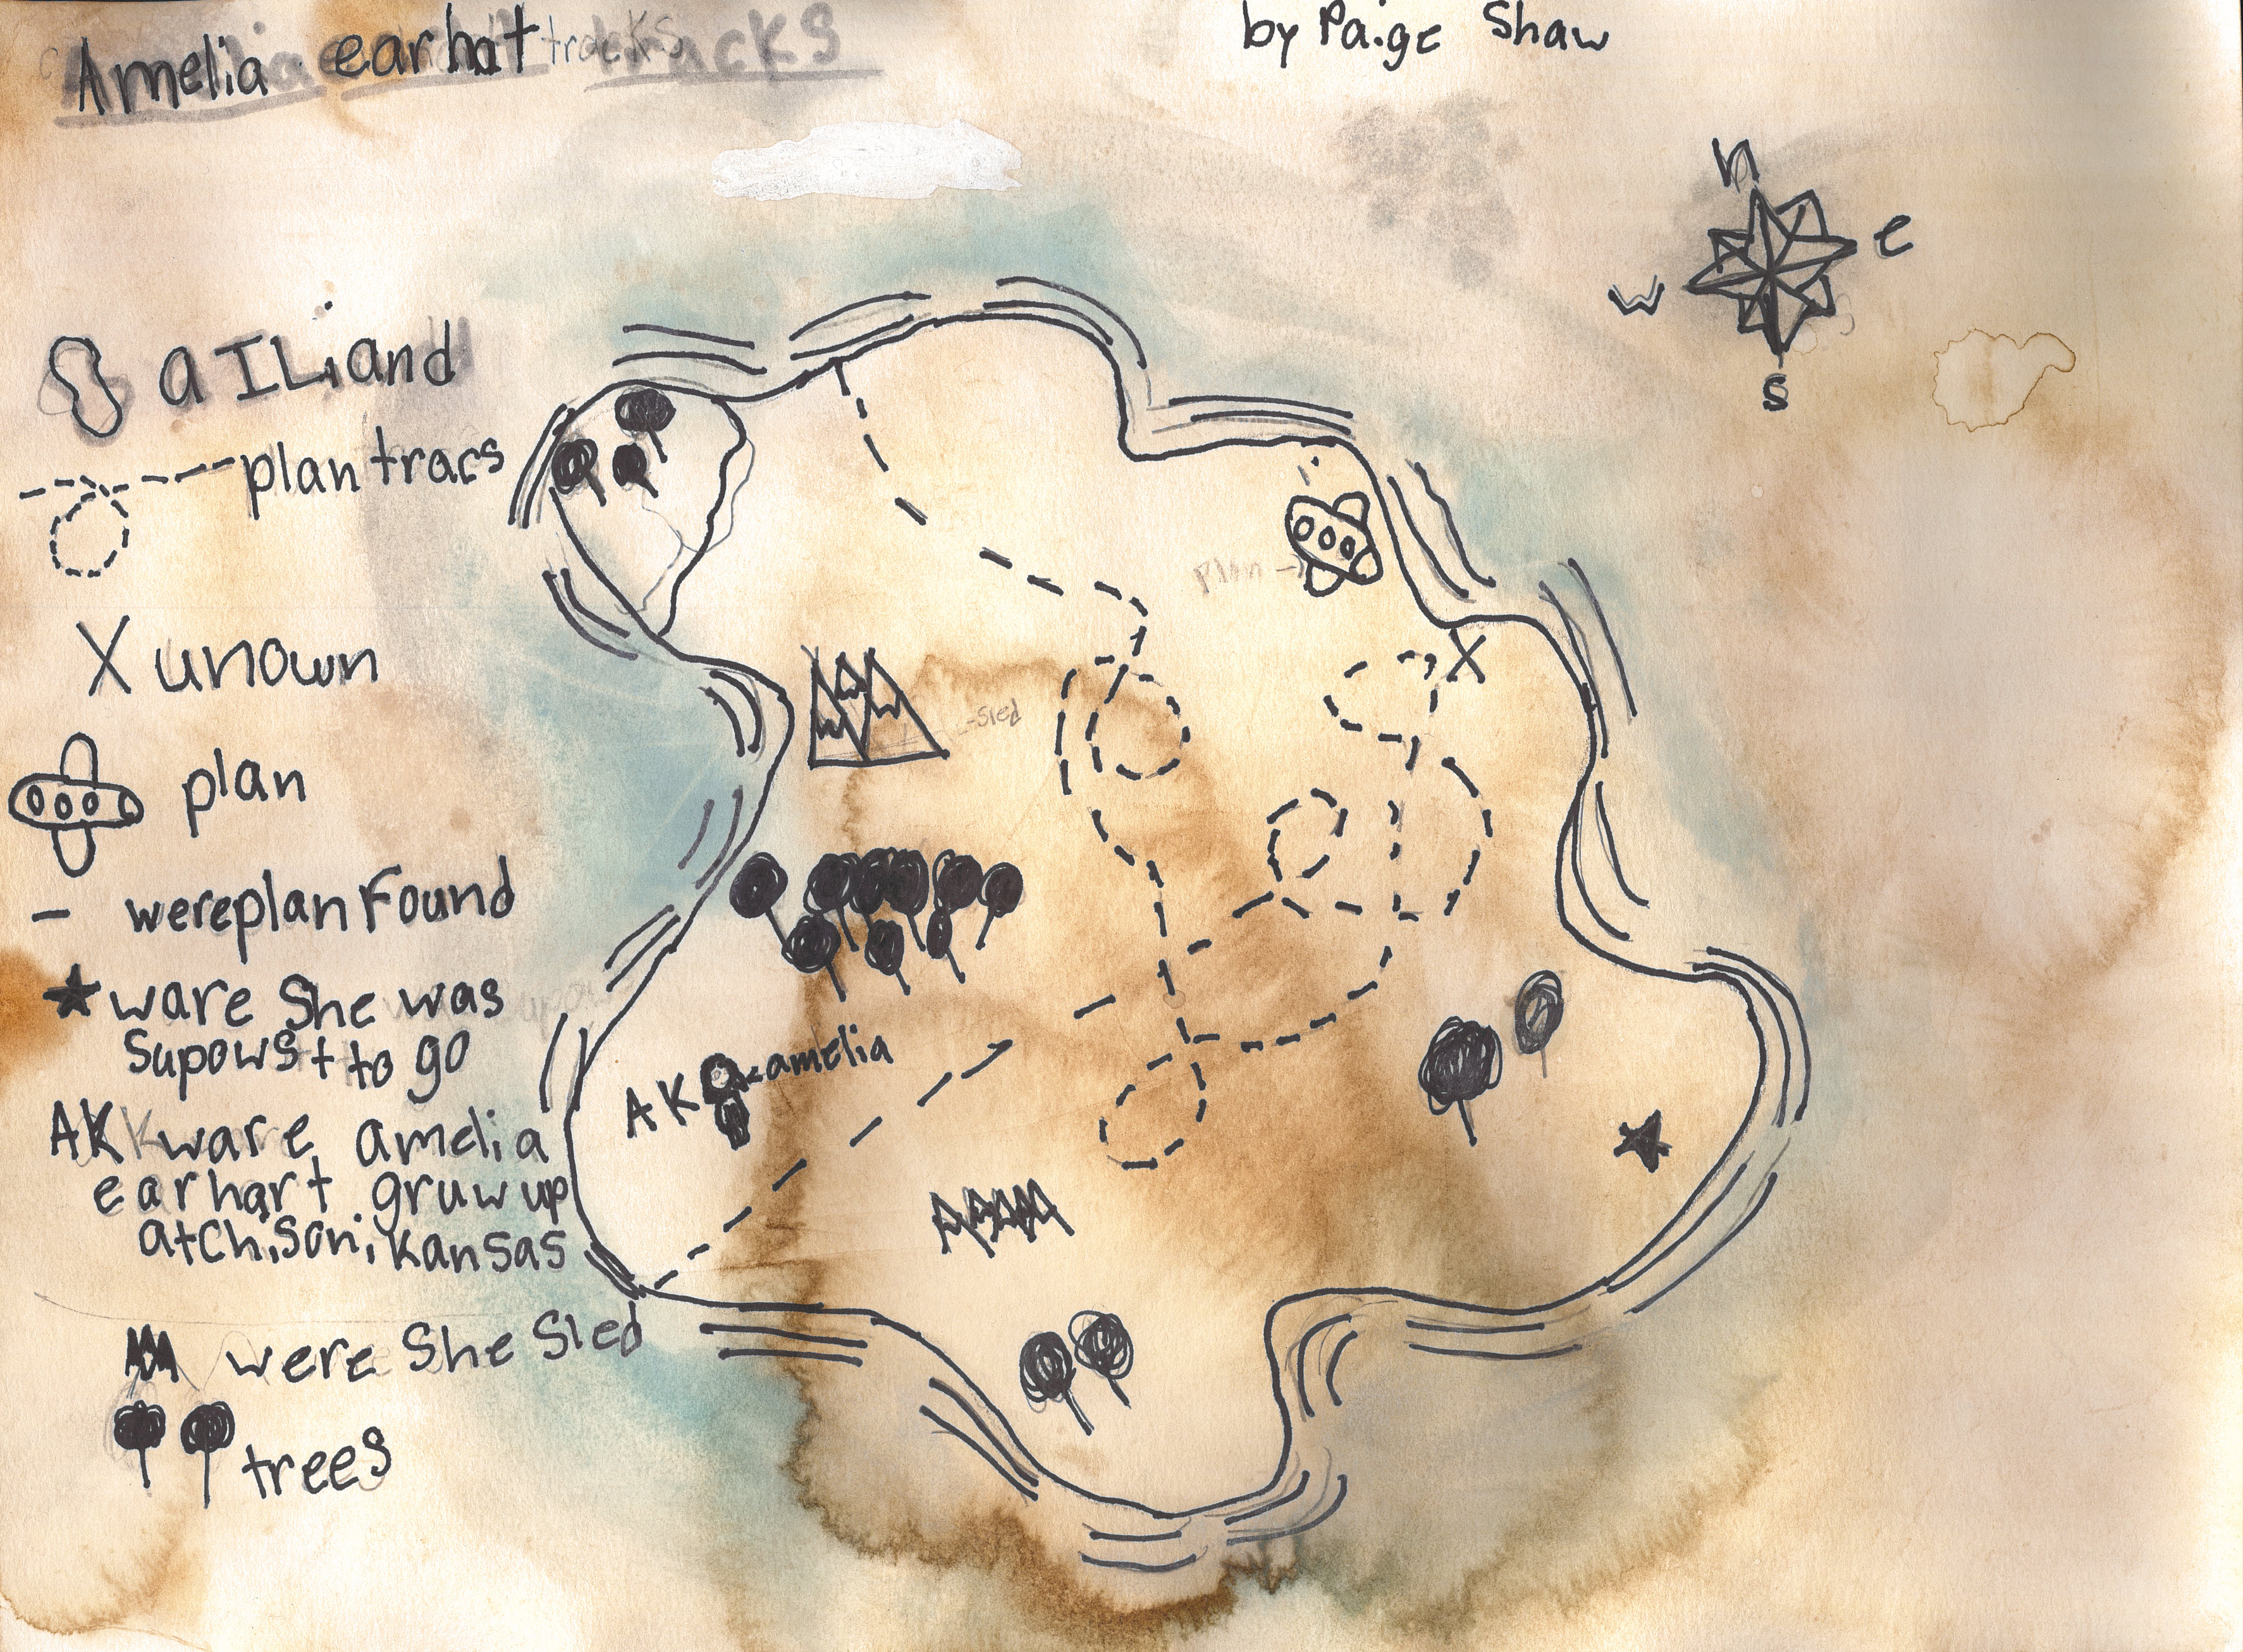 Amelia earhart tracks
by Paige Shaw
n
e
w
s
a ILiand
plan tracs
X unown
plan
- wereplan Found
ware She was
Supowst to go
AK ware amelia
earhart gruw up
atchison, kansas
were She Sled
trees
plan
X
-sled
AK amelia